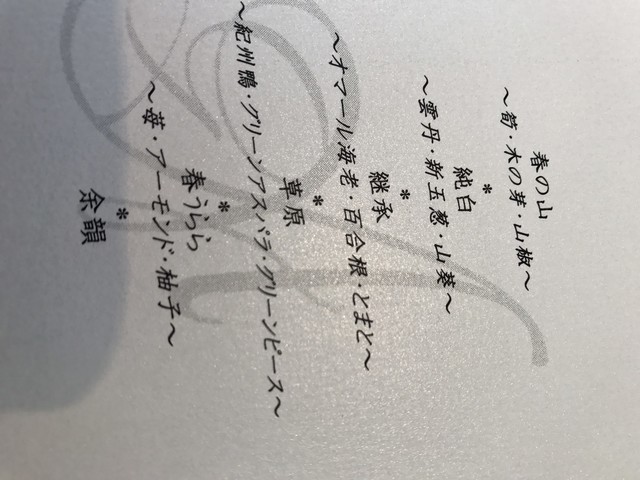 春の山
～筍・木の芽・山椒～
*
純白
～雲丹・新玉葱・山葵～
*
継承
～オマール海老・百合根・とまと～
*
草原
～紀州鴨・グリーンアスパラ・グリーンピース～
*
春うらら
～苺・アーモンド・柚子～
*
余韻